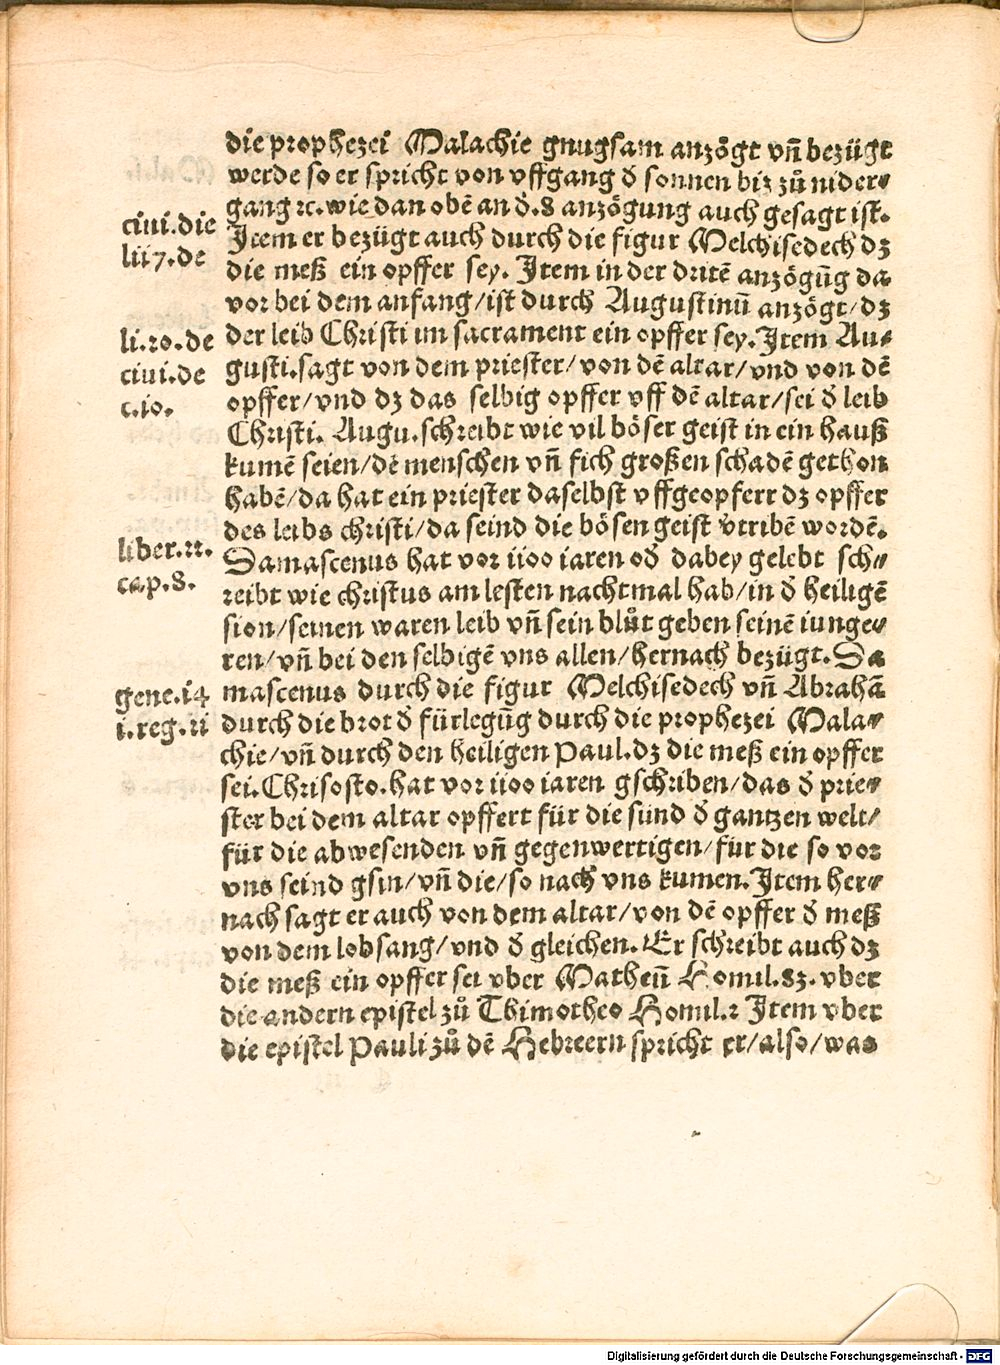 die prophezei Malachie gnugsam anzögt vñ bezügt
werde so er spricht von vffgang d̄ sonnen biz zů nider⸗
gang ꝛc. wie dan obē an d̄. 8 anzögung auch gesagt ist.
Item er bezügt auch durch die figur Melchisedech dz
die meß ein opffer sey. Item in der dritē anzögūg da
vor bei dem anfang/ist durch Augustinū anzögt/dz
der leib Christi im sacrament ein opffer sey. Item Au⸗
gusti. sagt von dem priester/von dē altar/vnd von dē
opffer/vnd dz das selbig opffer vff dē altar/sei d̄ leib
Christi. Augu. schreibt wie vil böser geist in ein hauß
kumē seien/dē menschen vñ fich großen schadē gethon
habē/da hat ein priester daselbst vffgeopferr dz opffer
des leibs christi/da seind die bösen geist v̄tribē wordē.
Damascenus hat vor 1100 iaren od̄ dabey gelebt sch⸗
reibt wie christus am lesten nachtmal hab/in d̄ heiligē
sion/seinen waren leib vñ sein blůt geben seinē iunge⸗
ren/vñ bei den selbigē vns allen/hernach bezügt. Da
mascenus durch die figur Melchisedech vñ Abrahā
durch die brot d̄ fürlegūg durch die prophezei Mala⸗
chie/vñ durch den heiligen Paul. dz die meß ein opffer
sei. Chrisosto. hat vor 1100 iaren gschriben/das d̄ prie⸗
ster bei dem altar opffert für die sünd d̄ gantzen welt/
für die abwesenden vñ gegenwertigen/für die so vor
vns seind gsin/vñ die/so nach vns kumen. Item her⸗
nach sagt er auch von dem altar/von dē opffer d̄ meß
von dem lobsang/vnd d̄ gleichen. Er schreibt auch dz
die meß ein opffer sei vber Matheū Homil. 83. vber
die andern epistel zů Thimotheo Homil. 2 Item vber
die epistel Pauli zů dē Hebreern spricht er/also/was
ciui. die
lii7. de
li. 20. de
ciui. de
c. 10.
liber. 22.
cap. 8.
gene. 14
1. reg. 21
Digitalisierung gefördert durch die Deutsche Forschungsgemeinschaft - DFG